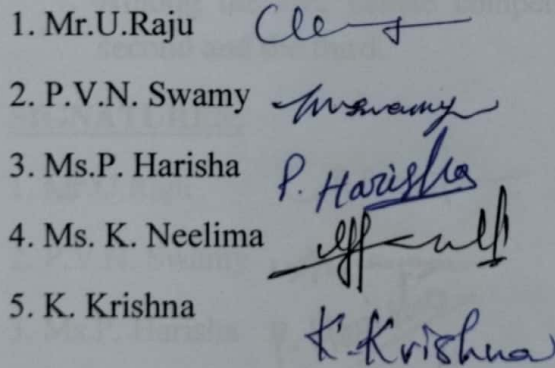 1. Mr.U.Raju
2. P.V.N. Swamy
3. Ms.P. Harisha P. Harisha
4. Ms. K. Neelima
5. K. Krishna K.Krishna